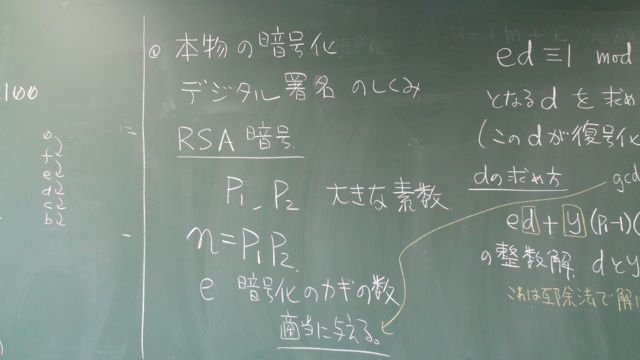 100
a2
f2
e2
d2
c2
b2
本物の暗号化
デジタル署名 のしくみ
RSA 暗号
P₁, P₂ 大きな素数
n=P₁P₂
e 暗号化のカギの数
適当に与える。
ed≡1 mod
となるdを求め
(このdが復号化
dの求め方
gcd
ed+y(P₁-1)(
の整数解 dとy
これは互除法で解